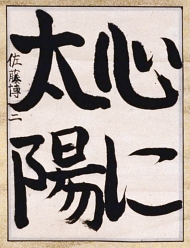 心に
太陽
佐藤博二